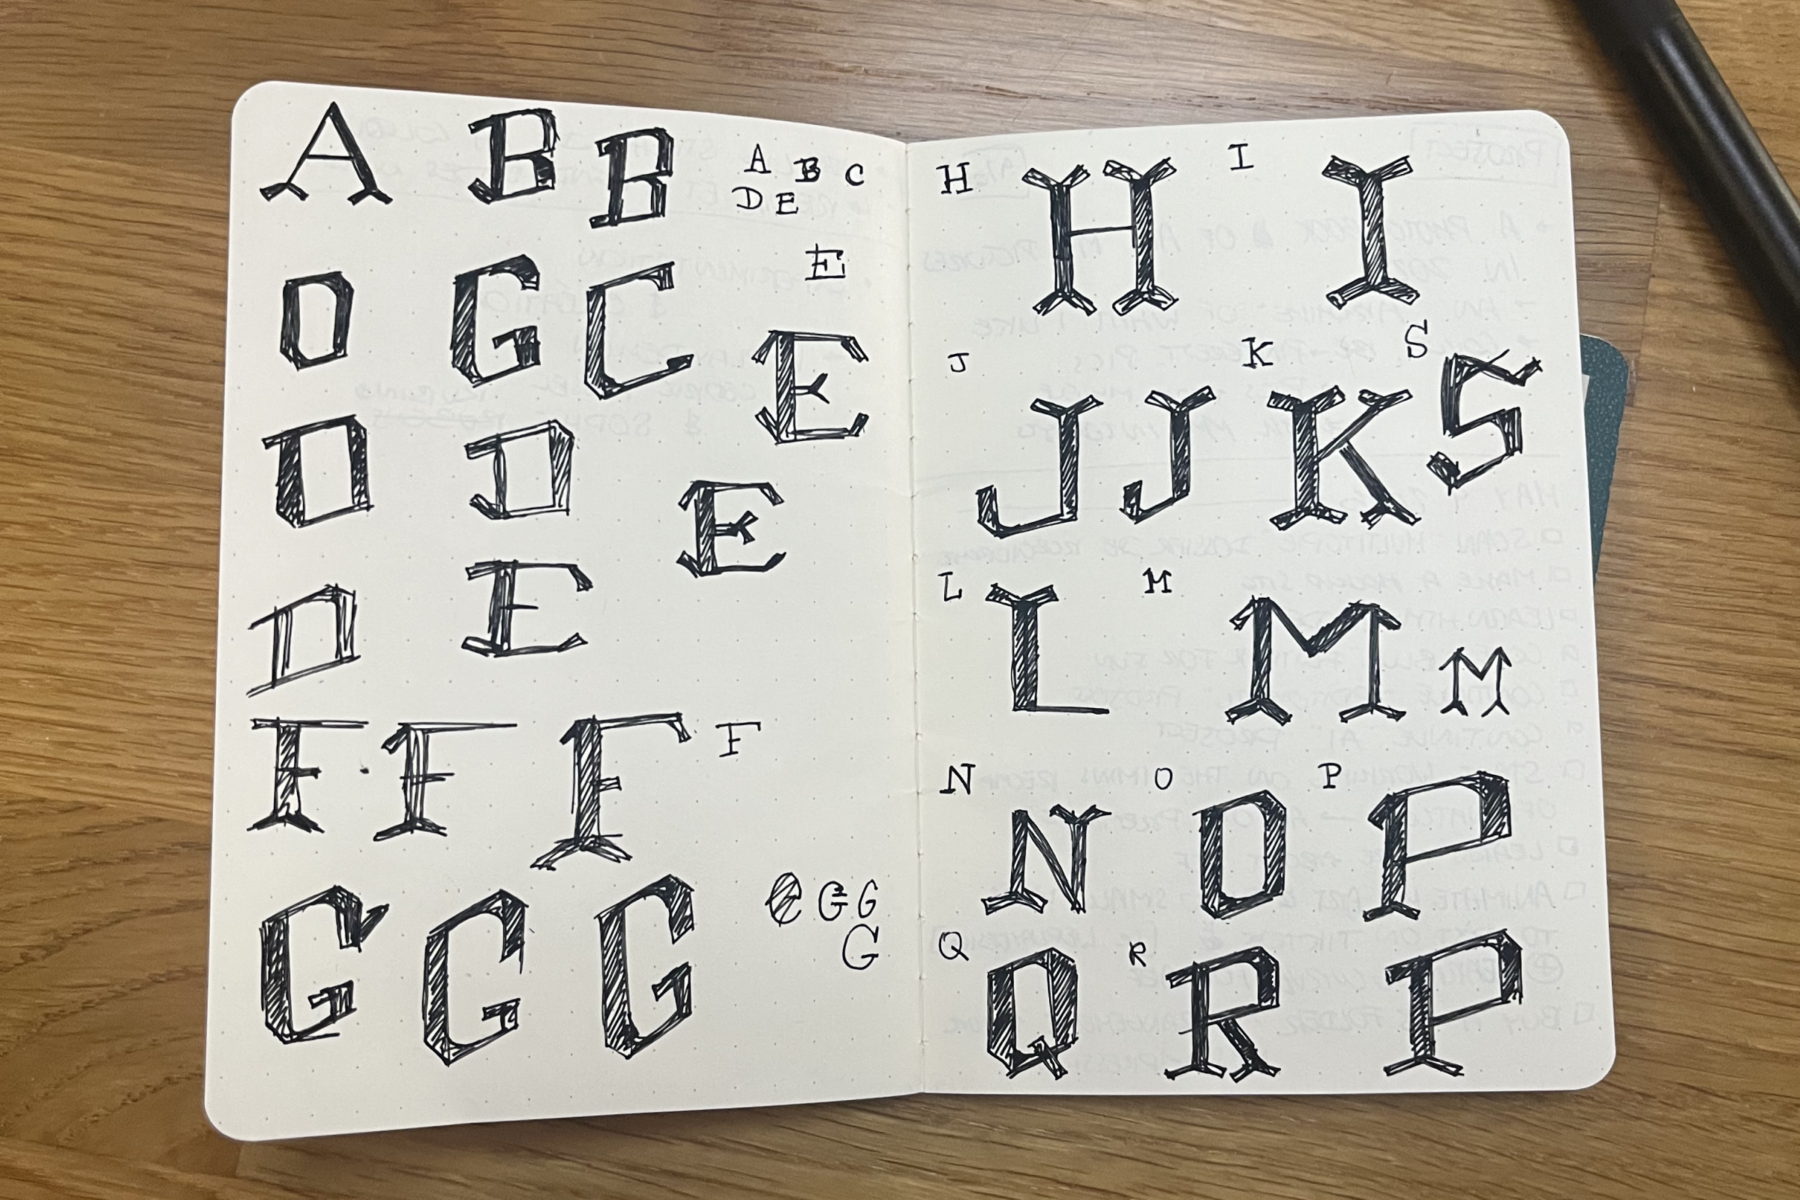 A B B A B C
D E
E
O G C
E
D D
E
D E
F F F F
G G G G G
G
H H I I
J K S S
J J K
L L M M M
N O P
N O P
Q R
Q R P